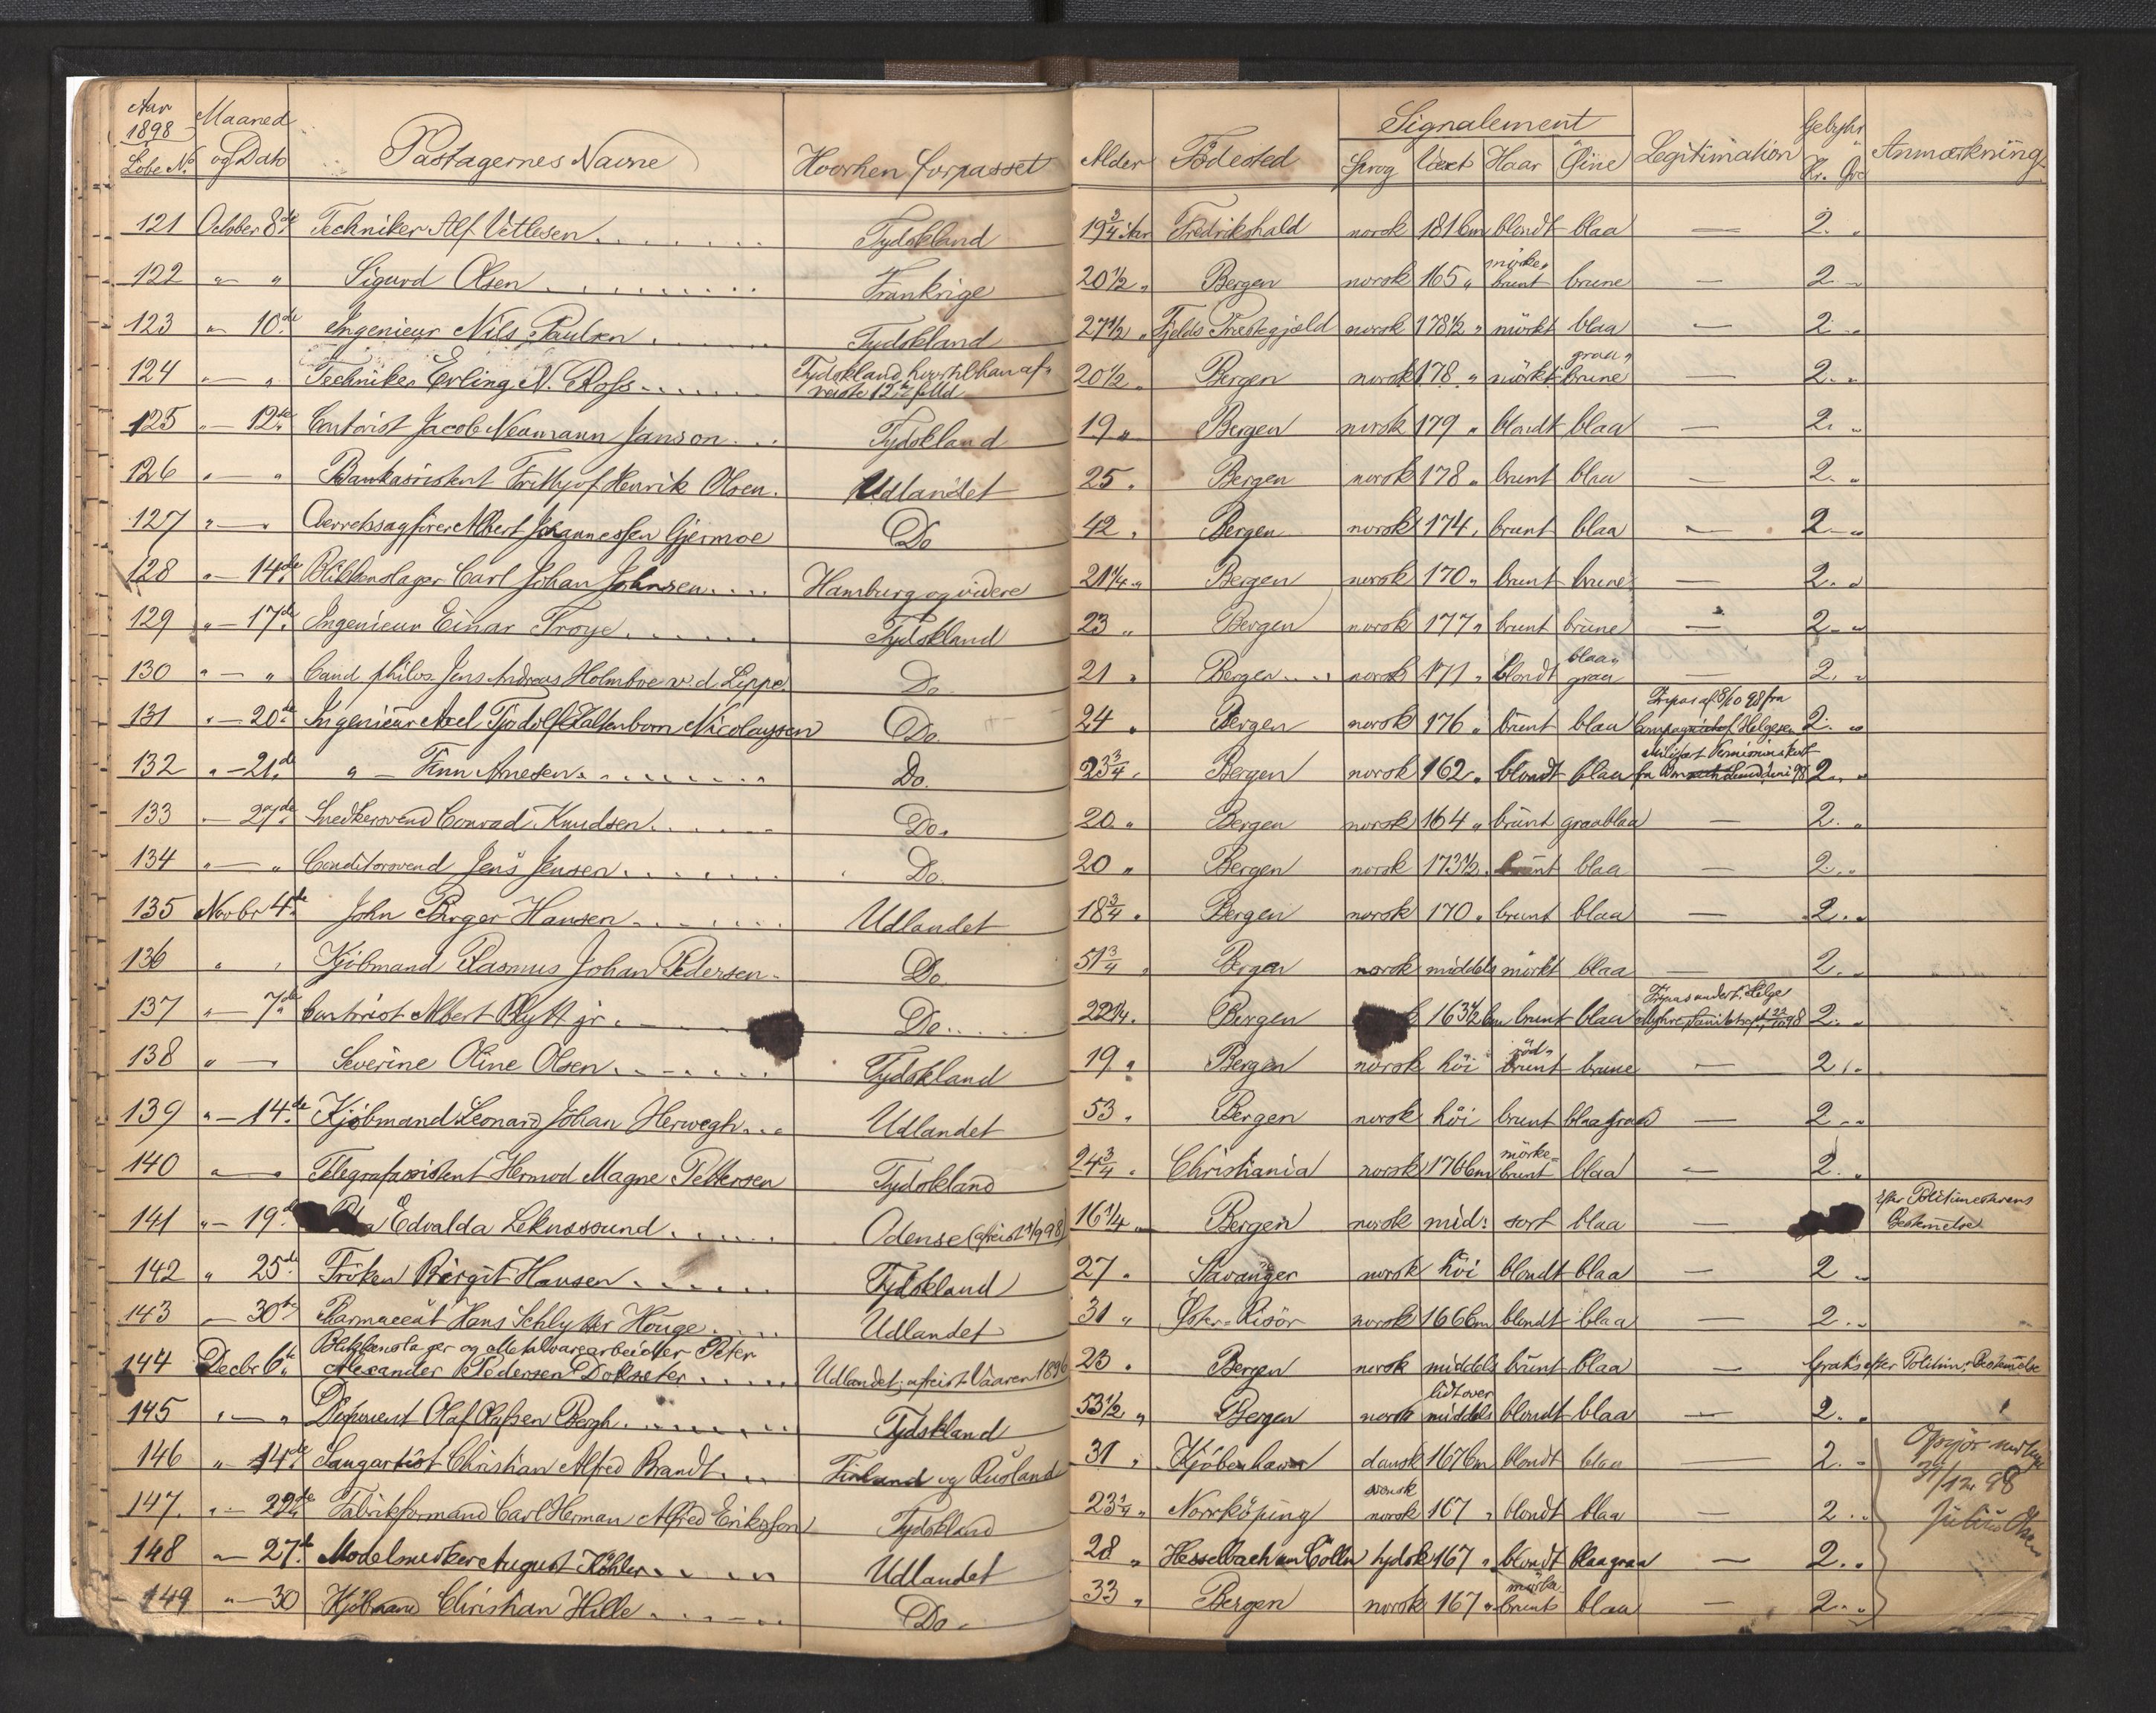 Aar 1898 Løbe No. Maaned og Dato Passagernes Navne Hvorhen forpasset Alder Födested Signalement Sprog Væxt Haar Öine Legitimation Gebyhr Kr. Öre Anmærkning
121 October 8de Techniker Alf Vetlesen Tydskland 19 3/4 Aar Fredrikshald norsk 181 Cm blondt blaa — 2. "
122 " — " Sigurd Olsen Frankrige 20 1/2 " Bergen norsk 165 " mörke brunt brune — 2. "
123 " 10de Ingenieur Nils Paulsen Tydskland 27 1/2 " Fjelds Præstegjæld norsk 178 1/2 " mörkt blaa — 2. "
124 " — " Techniker Erling N. Ross Tydskland, hvortil han af- reiste 12te 20 1/2 " Bergen norsk 178 " mörkt graa brune 2. "
125 " — 12te Contorist Jacob Neumann Janson Tydskland 19 " Bergen norsk 179 " blondt blaa — 2. "
126 " — " Bankasistent Frithjof Henrik Olsen. Udlandet 25 " Bergen norsk 178 " brunt blaa — 2. "
127 " — " Overretssagförer Albert Johannessen Gjermoe Do 42 " Bergen norsk 174 " brunt blaa — 2 — "
128 " — 14de Blikkenslager Carl Johan Johnsen Hamburg og videre 21 1/4 " Bergen norsk 170 " brunt brune — 2. "
129 " — 17de Ingenieur Einar Troye Tydskland 23 " Bergen norsk 177 " brunt brune — 2 — "
130 " — " Cand philos. Jens Andreas Holmboe v. d. Lippe Do. 21 " Bergen norsk 171 " blondt blaa graa — 2. "
131 " — 20de Ingenieur Axel Tjodolf Faltenborn Nicolaysen Do. 24 " Bergen norsk 176 " brunt blaa fra Helgesen 2. "
132 " — 21de " — Finn Arnesen Do. 23 3/4 " Bergen norsk 162 " blondt blaa fra 2. "
133 — 27de Snedkersvend Conrad Knudsen Do. 20 " Bergen norsk 164 " brunt graablaa — 2. "
134 " — " Conditorsvend Jens Jensen Do. 20 " Bergen norsk 173 1/2 " brunt blaa — 2. "
135 Novbr 4de John Birger Hansen Udlandet 18 3/4 " Bergen norsk 170 " brunt blaa — 2. "
136 " " Kjöbmand Rasmus Johan Pedersen Do. 51 3/4 " Bergen norsk middels mörkt blaa — 2. "
137 " — 7de Contorist Albert Blytt jr. Do. 22 1/4 " Bergen 163 1/2 Cm brunt blaa Myhre, 2. "
138 " — " Severine Oline Olsen Tydskland 19 " Bergen norsk höi röd- brunt brune — 2. "
139 " — 14de Kjöbmand Leonard Johan Herwegh Udlandet 53 " Bergen norsk höi brunt blaagraa — 2. "
140 " — " Telegrafassistent Hermod Magne Pettersen Tydskland 24 3/4 " Christiania norsk 176 Cm mörke- brunt blaa — 2. "
141 " — 19de Edvalda Leknessund Odense (afreist 98) 16 1/4 " Bergen norsk mid: sort blaa — Efter Politimesterens Bestemelse
142 " 25de Fröken Birgit Hansen Tydskland 27 " Stavanger norsk höi blondt blaa — 2 "
143 — 30te Farmaceut Hans Schlytter Houge Udlandet 31 " Öster-Risör norsk 166 Cm blondt blaa — 2. "
144 Decbr 6te Blikkenslager og Metalvarearbeider Peter Alexander Pedersen Dokseter Udlandet; afreist Vaaren 1896 23 " Bergen norsk middels brunt blaa — Gratis efter Politim. Bestemelse
145 " — " Disponent Olaf Olafsen Bergh Tydskland 53 1/2 " Bergen norsk lidt over middels blondt blaa — 2. "
146 " 14de Sangartist Christian Alfred Brandt Finland og Rusland 31 " Kjöbenhavn dansk 167 Cm blondt blaa — 2. " Opgjör
147. " — 22de Fabrikformand Carl Herman Alfred Eriksson Tydskland 23 1/4 " Norrköping svensk norsk 167 " blondt blaa — 2. " 31/12 98
148 " — 27de Modelsnedker August Köhler Udlandet 28 " Hesselbach tydsk 167 " blondt blaagraa — 2. " Julius Olsen
149 " — 30 Kjöbmand Christian Hille Do. 33 " Bergen norsk 167 " mörke brunt blaa — 2. "